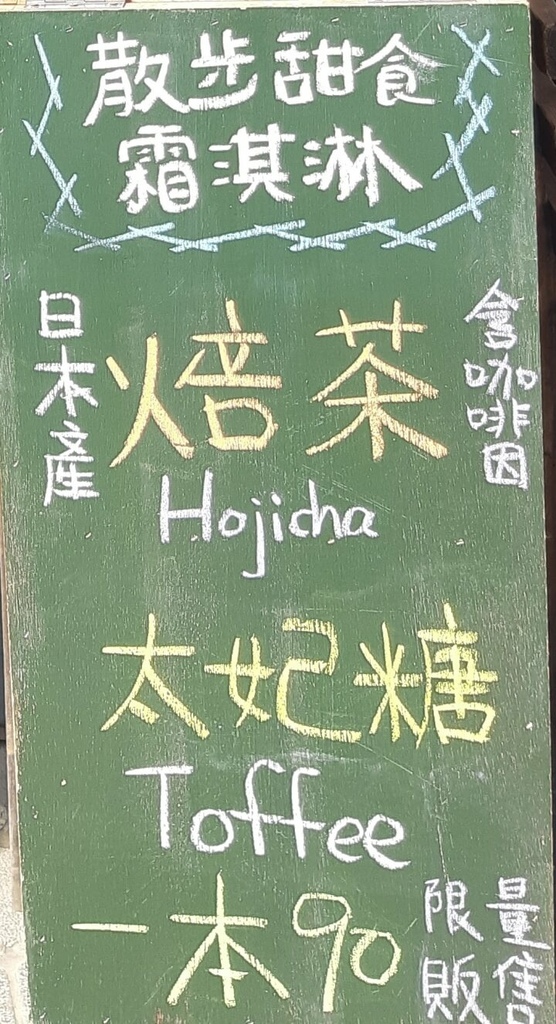 散步甜食
霜淇淋
日本產
焙茶
含咖啡因
Hojicha
太妃糖
Toffee
一本90
限量
販售